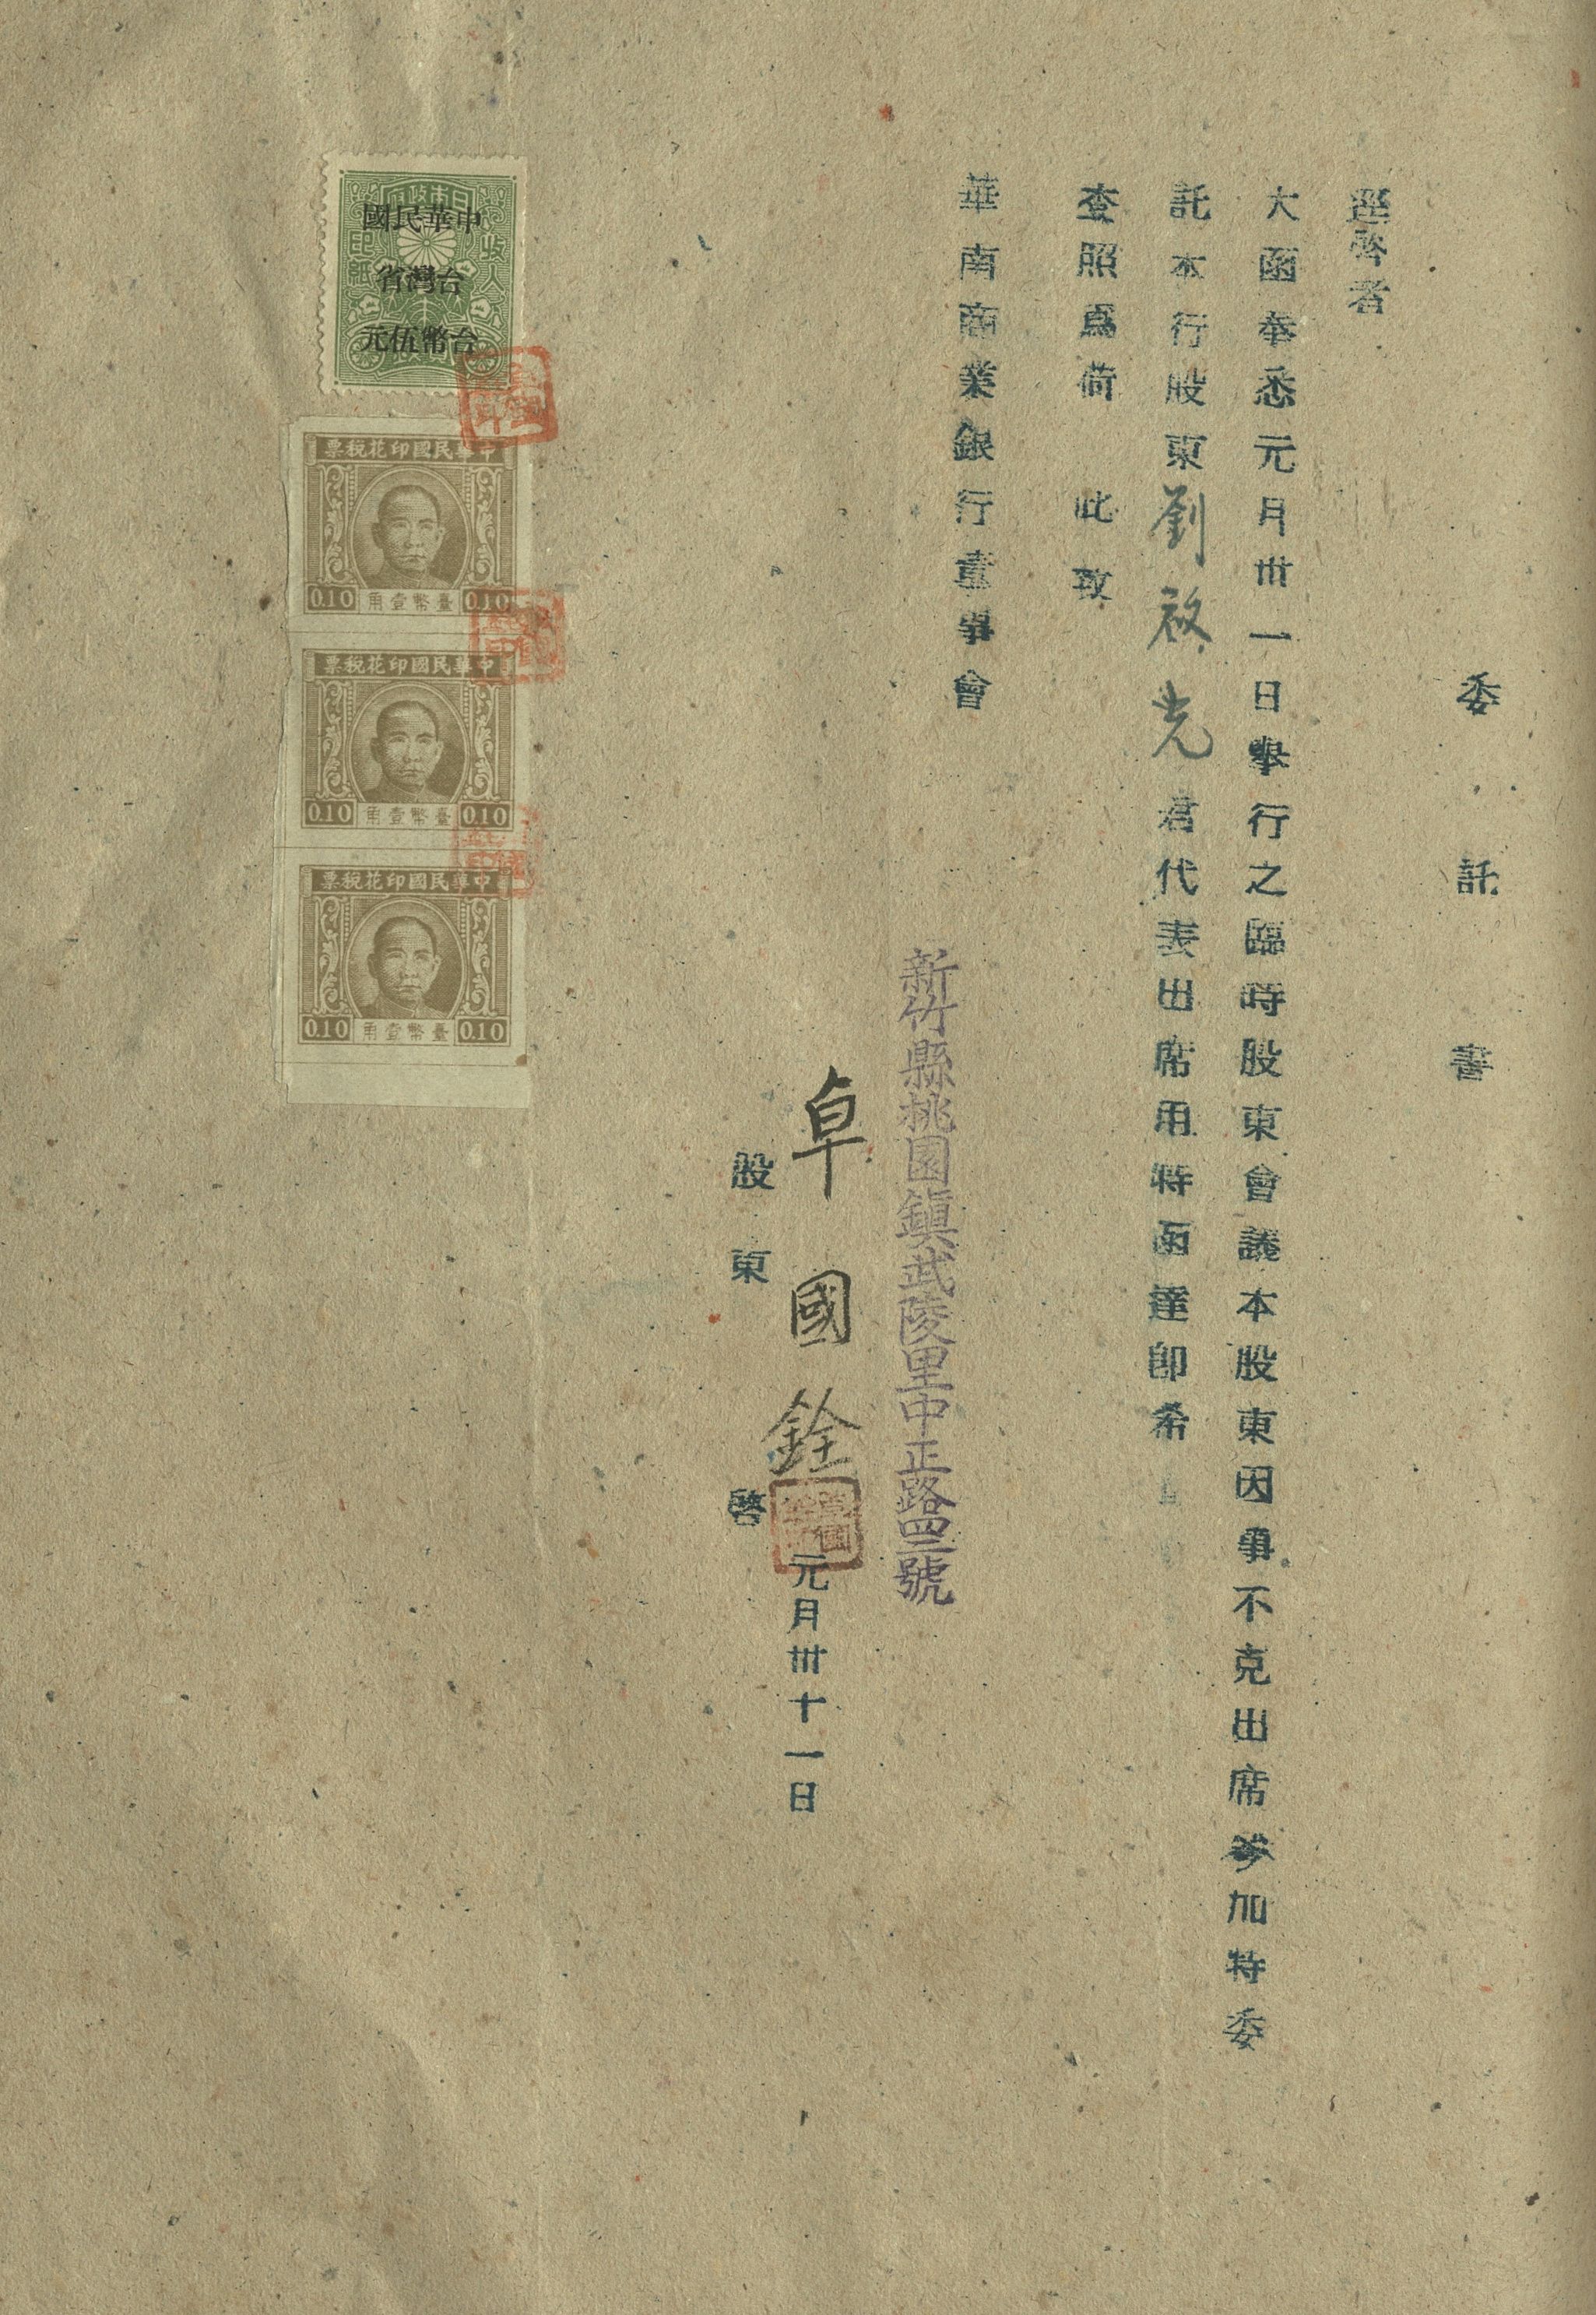 委託書
逕啓者
大函奉悉元月卅一日舉行之臨時股東會議本股東因事不克出席參加特委
託本行股東劉啓光君代表出席用特函達卽希
查照爲荷 此致
華南商業銀行董事會
新竹縣桃園鎮武陵里中正路四三號
卓國銓
元月卅十一日
股東 啓
中華民國
台灣省
台幣伍元
收入印紙
中華民國印花稅票
0.10 臺幣壹角 0.10
中華民國印花稅票
0.10 臺幣壹角 0.10
中華民國印花稅票
0.10 臺幣壹角 0.10